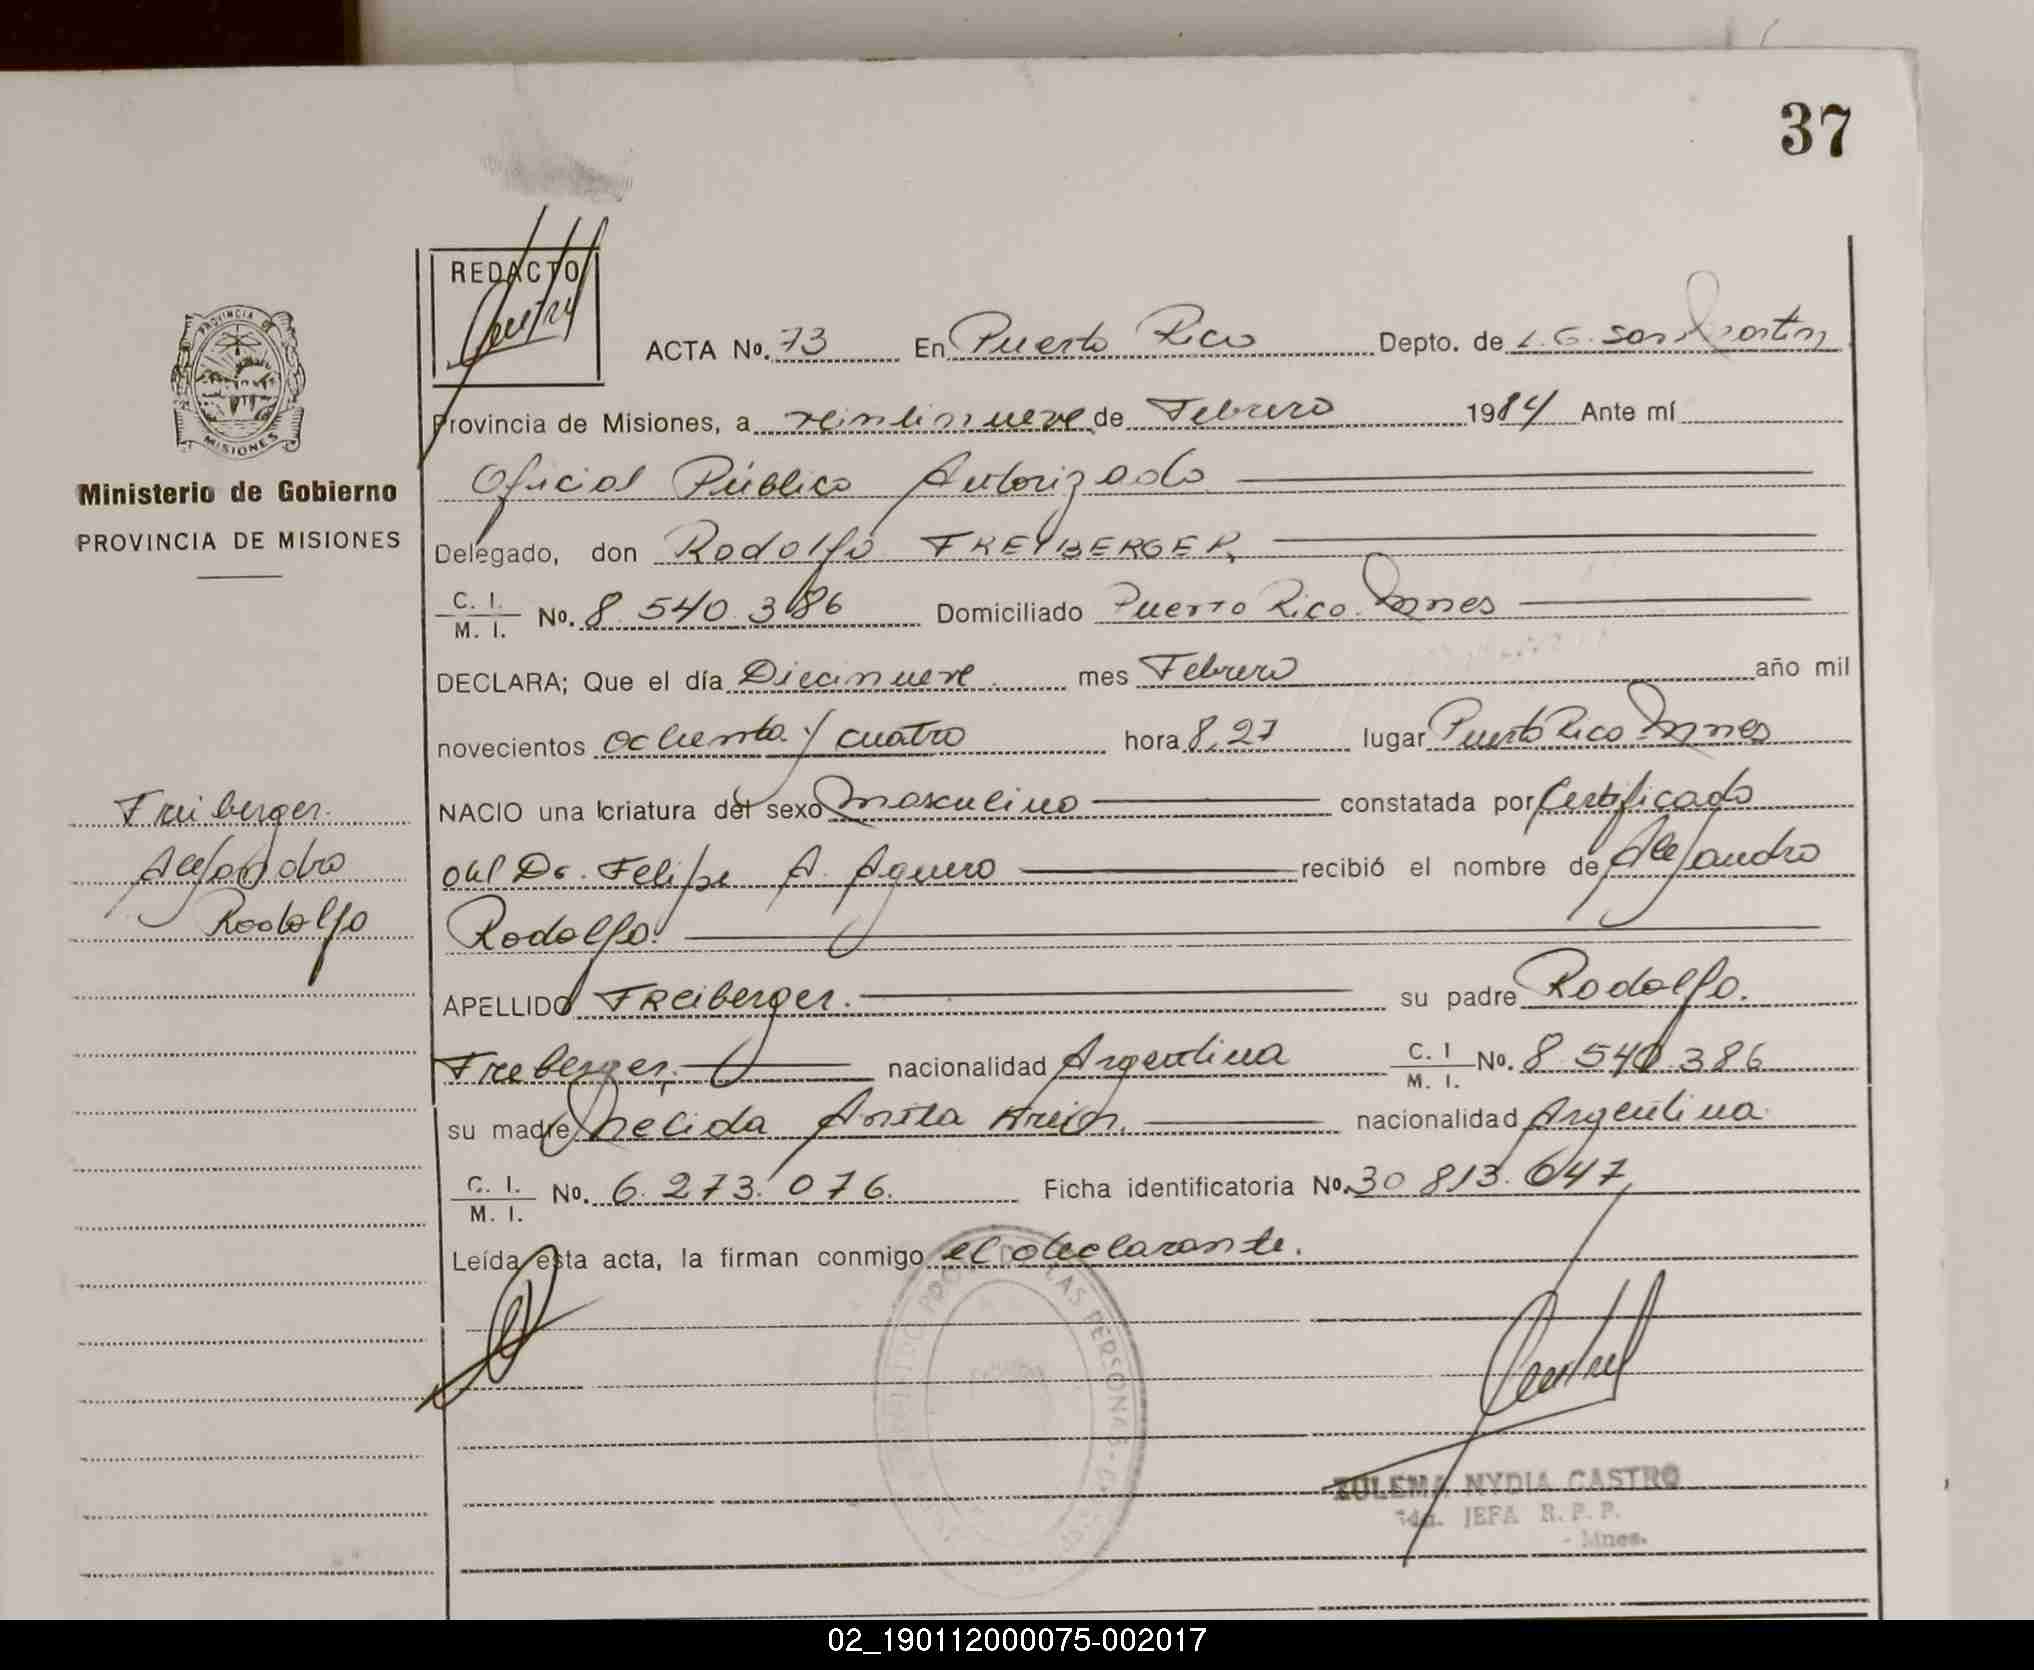 37
REDACTO
ACTA No. 73 En Puerto Rico Depto. de L. G. San Martin
Provincia de Misiones, a veintinueve de Febrero 1984 Ante mí
Oficial Público Autorizado
Delegado, don Rodolfo FREYBERGER,
C. I. / M. I. No. 8.540.386 Domiciliado Puerto Rico. Mnes
DECLARA; Que el día Diecinueve mes Febrero año mil
novecientos ochenta y cuatro hora 8,27 lugar Puerto Rico Mnes
NACIO una criatura del sexo masculino constatada por Certificado
del Dr. Felipe A. Aguero recibió el nombre de Alejandro
Rodolfo.
APELLIDO FReiberger. su padre Rodolfo.
Freiberger. nacionalidad Argentina C. I / M. I. No. 8.540.386
su madre Nelida Anita nacionalidad Argentina
C. I. / M. I. No. 6.273.076. Ficha identificatoria No. 30.813.647
Leída esta acta, la firman conmigo el declarante.
PROVINCIA DE
MISIONES
Ministerio de Gobierno
PROVINCIA DE MISIONES
Freiberger.
Alejandro
Rodolfo
LAS PERSONAS
ZULEMA NYDIA CASTRO
JEFA R. P. P.
- Mnes.
02_190112000075-002017